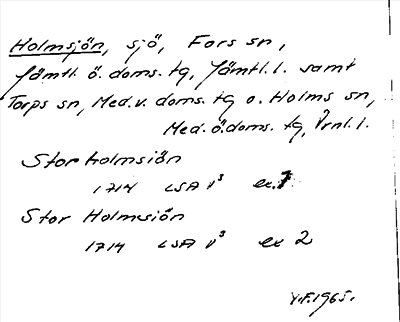 Holmsjön, sjö, Fors sn,
Jämtl. ö. doms. tg, Jämtl. l. samt
Torps sn, Med. v. doms. tg o. Holms sn,
Med. ö. doms. tg, Vrnl. l.
Storholmsiön
1714 LSA V³ ex. 1
Stor Holmsiön
1714 LSA V³ ex 2
V.F. 1965.